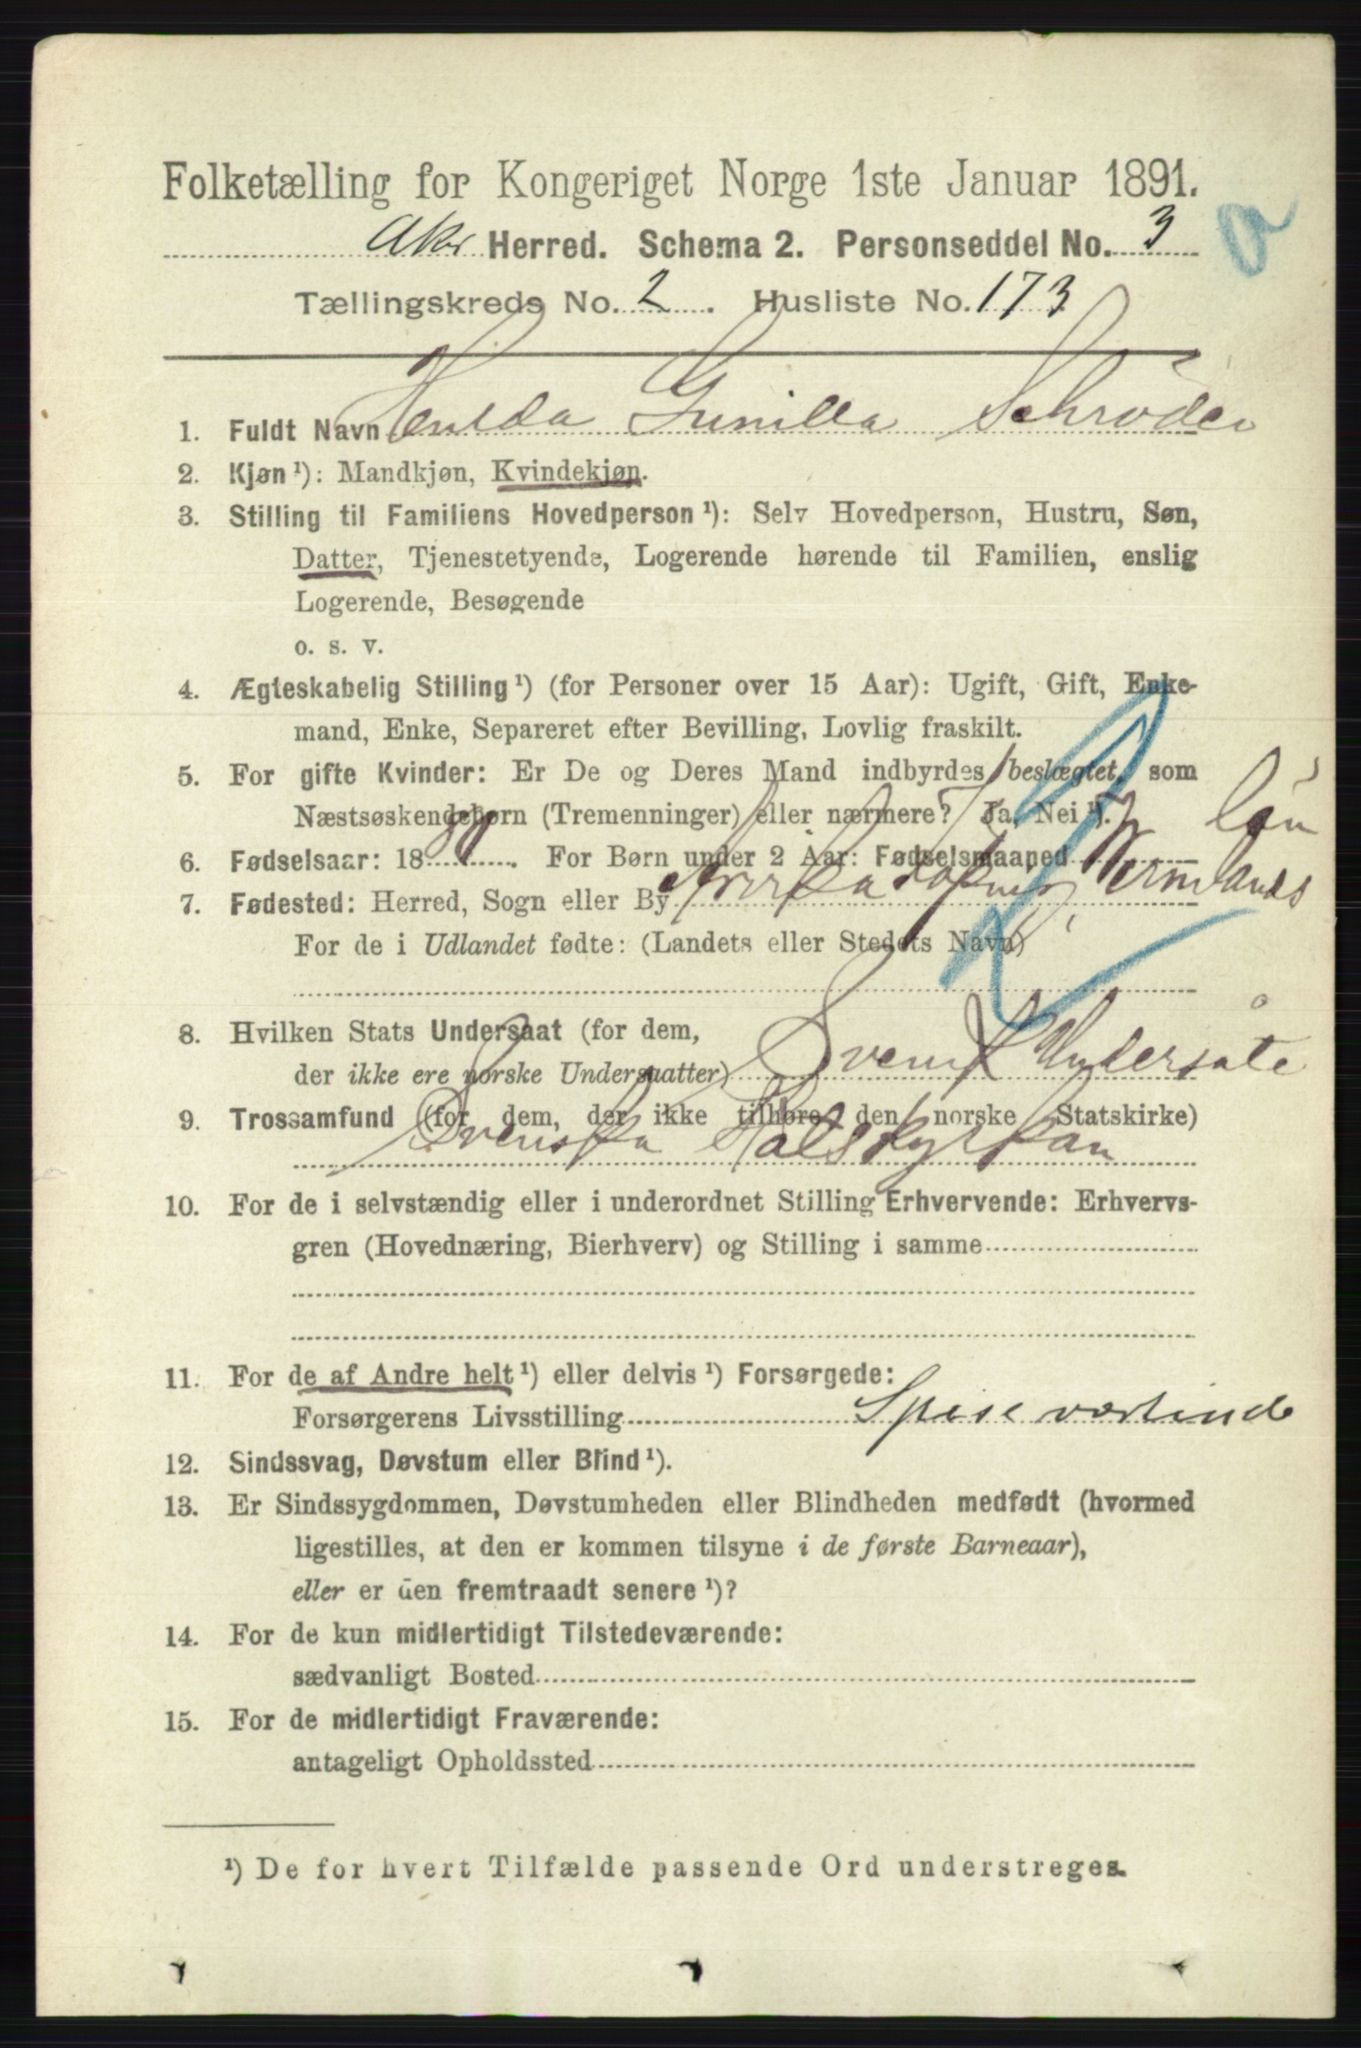 Folketælling for Kongeriget Norge 1ste Januar 1891.
Aker Herred. Schema 2. Personseddel No. 3
a
Tællingskreds No. 2. Husliste No. 173
1. Fuldt Navn Hulda Gunilla Schröder
2. Kjøn ¹): Mandkjøn, Kvindekjøn.
3. Stilling til Familiens Hovedperson ¹): Selv Hovedperson, Hustru, Søn,
Datter, Tjenestetyende, Logerende hørende til Familien, enslig
Logerende, Besøgende
o. s. v.
4. Ægteskabelig Stilling ¹) (for Personer over 15 Aar): Ugift, Gift, Enke-
mand, Enke, Separeret efter Bevilling, Lovlig fraskilt.
5. For gifte Kvinder: Er De og Deres Mand indbyrdes beslægtet, som
Næstsøskendebørn (Tremenninger) eller nærmere? Ja, Nei ¹).
län
6. Fødselsaar: 18 . For Børn under 2 Aar: Fødselsmaaned
7. Fødested: Herred, Sogn eller By Arvika Wermlands
For de i Udlandet fødte: (Landets eller Stedets Navn)
8. Hvilken Stats Undersaat (for dem,
der ikke ere norske Undersaatter) Svensk Undersåte
9. Trossamfund (for dem, der ikke tilhøre den norske Statskirke)
Svenska Statskyrkan
10. For de i selvstændig eller i underordnet Stilling Erhvervende: Erhvervs-
gren (Hovednæring, Bierhverv) og Stilling i samme
11. For de af Andre helt ¹) eller delvis ¹) Forsørgede:
Forsørgerens Livsstilling Spiseværtinde
12. Sindssvag, Døvstum eller Blind ¹).
13. Er Sindssygdommen, Døvstumheden eller Blindheden medfødt (hvormed
ligestilles, at den er kommen tilsyne i de første Barneaar),
eller er den fremtraadt senere ¹)?
14. For de kun midlertidigt Tilstedeværende:
sædvanligt Bosted
15. For de midlertidigt Fraværende:
antageligt Opholdssted
¹) De for hvert Tilfælde passende Ord understreges.